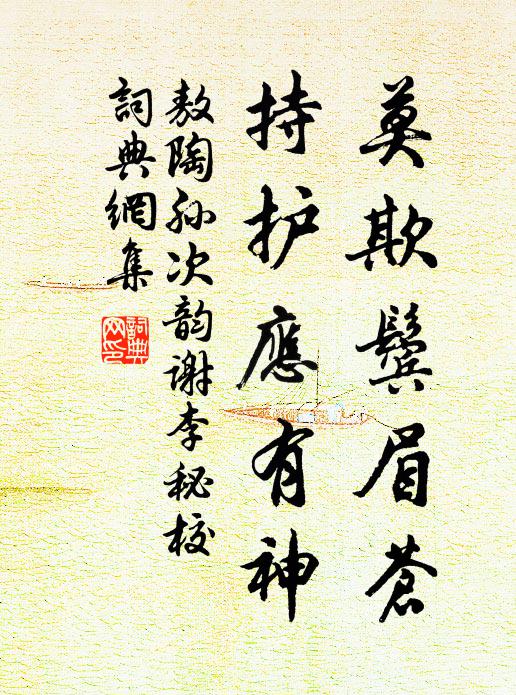 莫欺鬓眉蒼
持护應有神
敖陶孙次韵谢李秘校
詞典網集
詞典網印